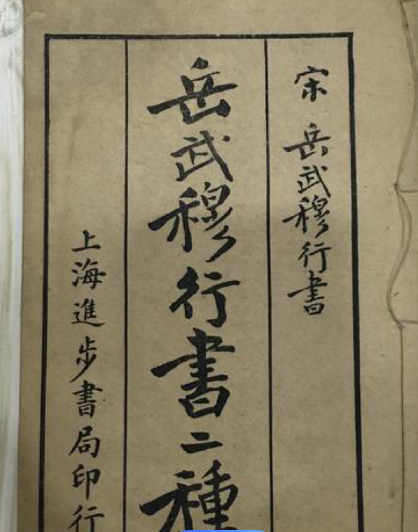 宋 岳武穆行書
岳武穆行書二種
上海進步書局印行